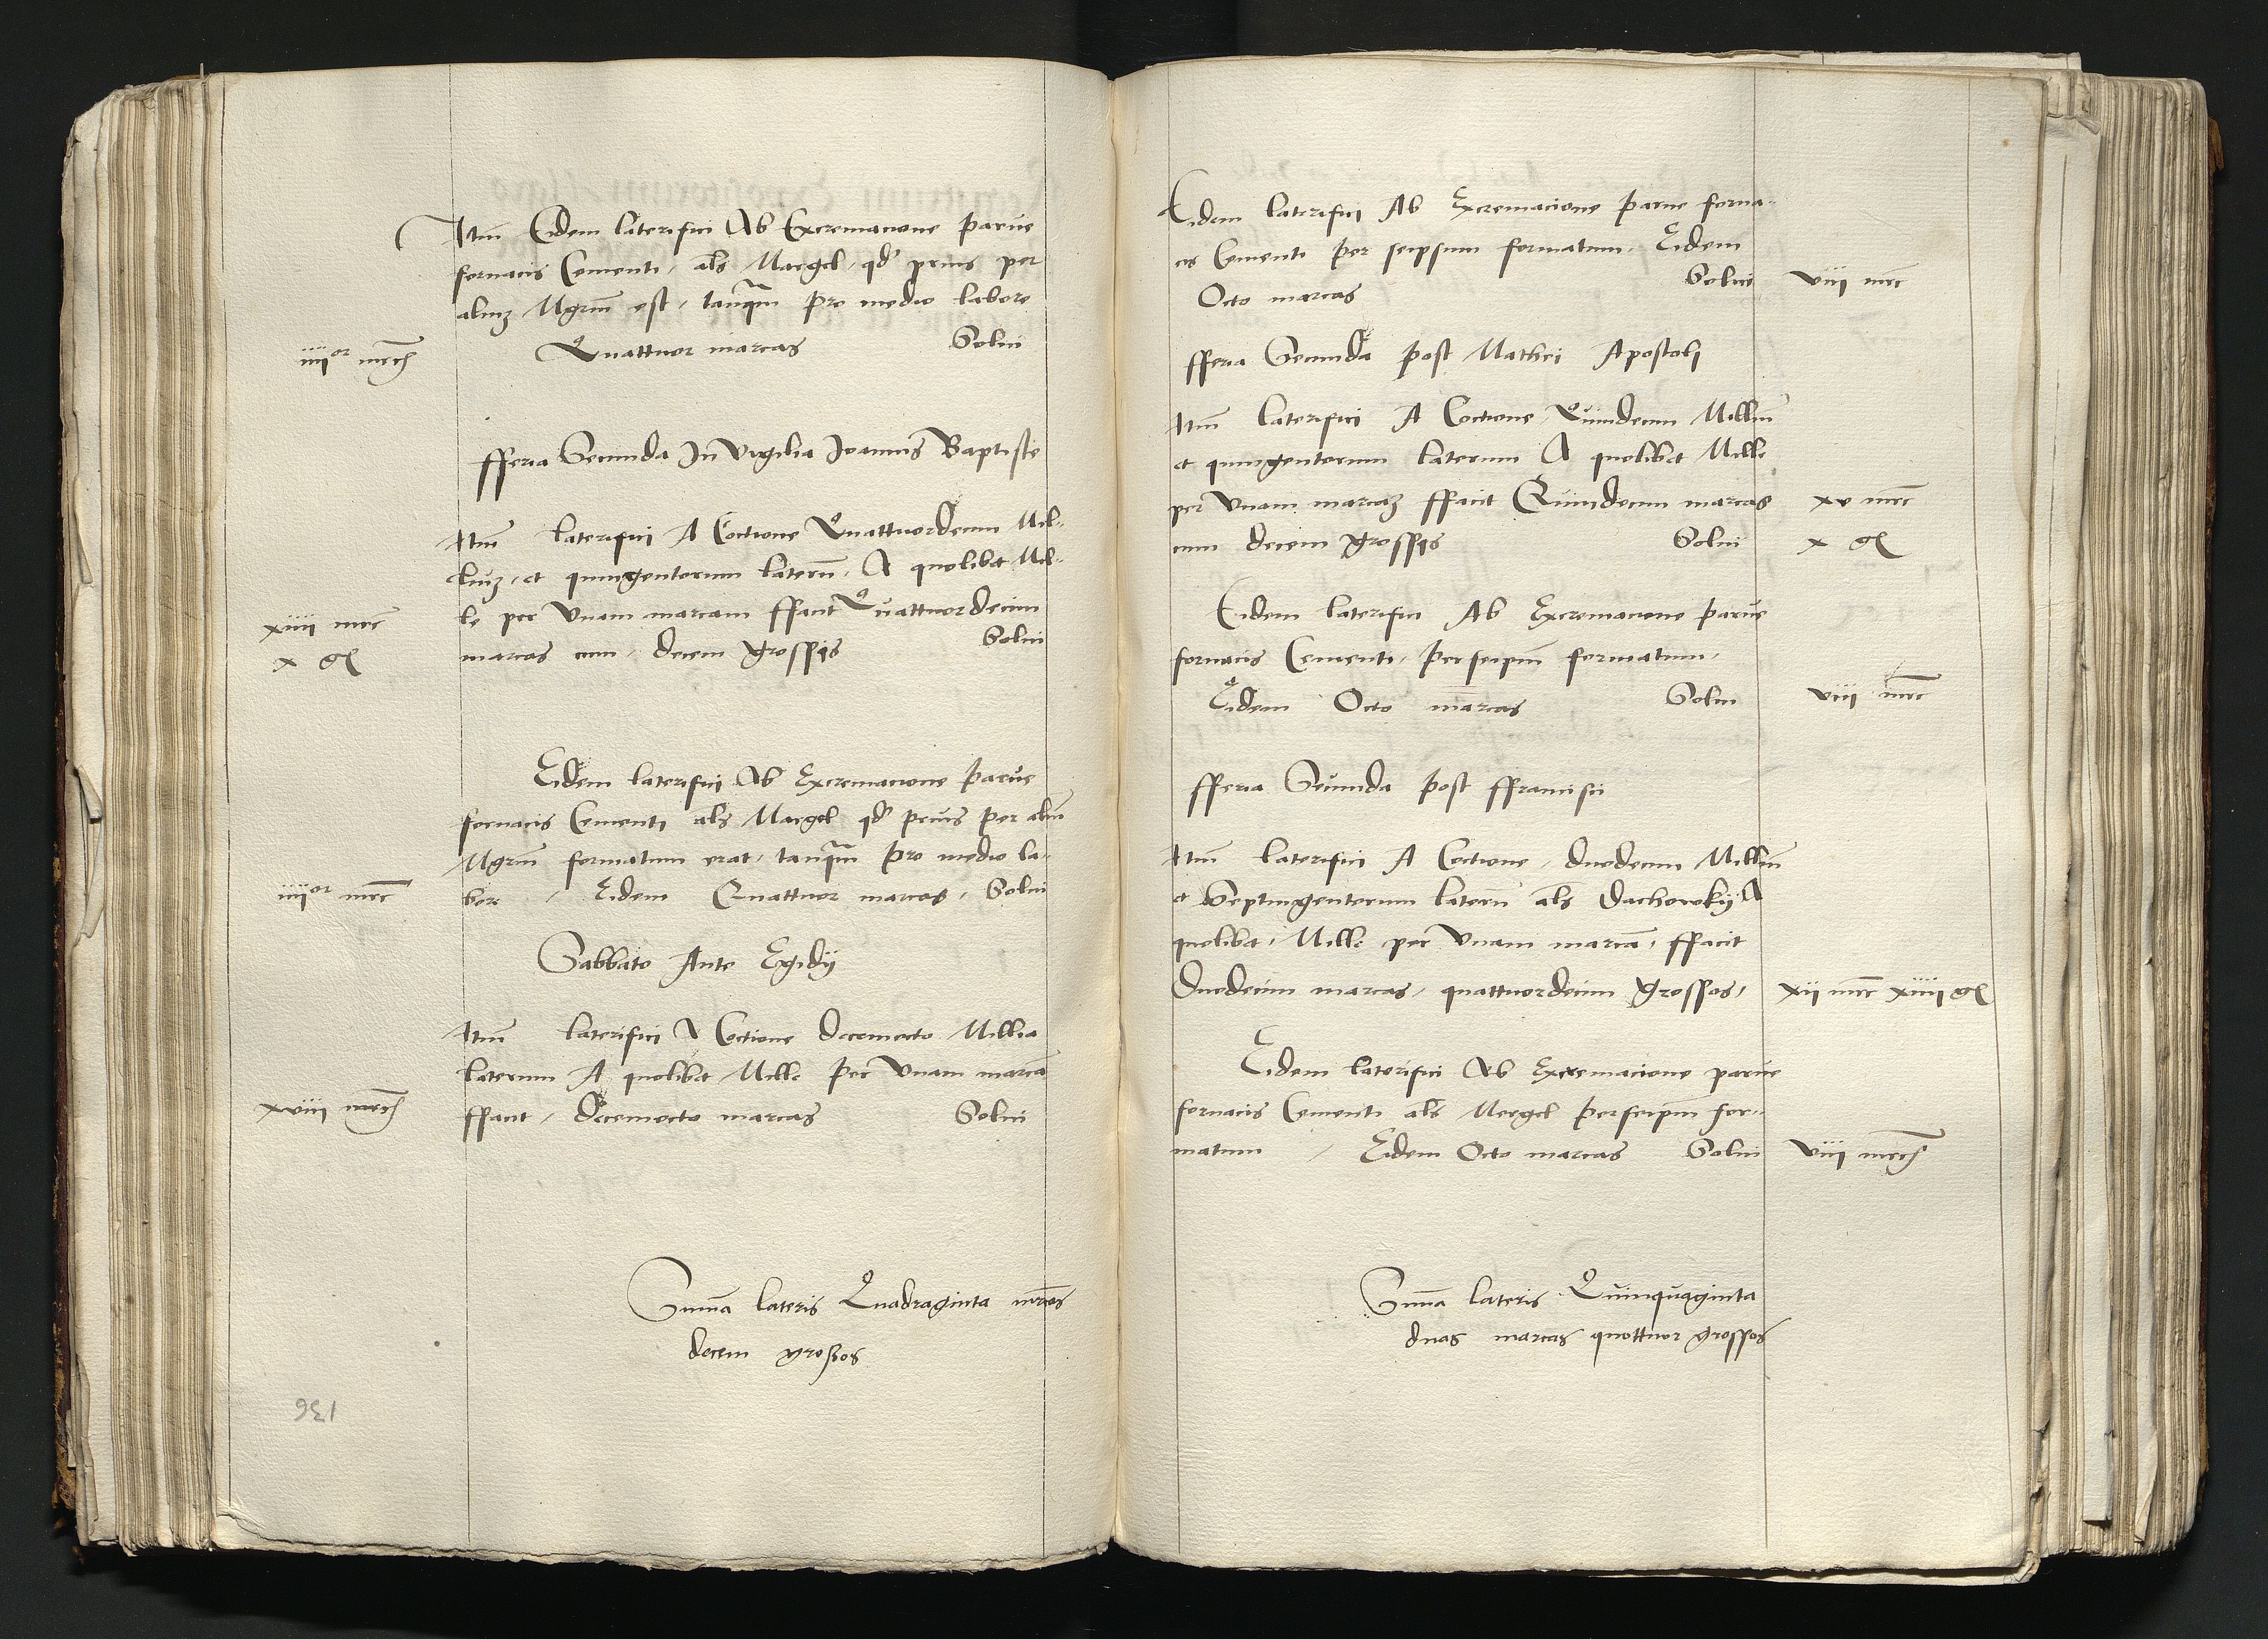 Itm Eidem laterifici Ab Excremacione parue
fornacis Cementi, als Margel, qd prius per
aliuz Mgrm est, tanqm pro medio labore
iiiior mrc Quattuor marcas Solui
fferia Secunda In Vigilia Joannis Baptiste
Itm laterifici A Coctione Quattuordecim Mil-
liuz, et quingentorum laterum, A quolibet Mil-
xiiii mrc le per Vnam marcam ffacit Quattuordecim
x gl marcas cum, decem grossis Solui
Eidem laterifici Ab Excremacione parue
fornacis Cementi als Margel qd prius per aliu
Mgrm formatum erat, tanqm pro medio la-
iiiior mrc bore, Eidem Quattuor marcas, Solui
Sabbato Ante Egidij
Itm laterifici A Coctione decemocto Millia
laterum A quolibet Mille per Vnam marca
xviii mrc ffacit, decemocto marcas Solui
Summa lateris Quadraginta mrcas
decem grossos
136
Eidem laterifici Ab Excremacione parue forna-
cis Cementi per seipsum formatum, Eidem
Octo marcas Solui viii mrc
fferia Secunda post Mathei Apostoli
Itm laterifici A Coctione, Quindecim Milliu
et quingentorum laterum A quolibet Mille
per Vnam marcaz ffacit Quindecim marcas xv mrc
cum decem grossis Solui x gl
Eidem laterifici Ab Excremacione parue
fornacis Cementi, per seipm formatum,
Eidem Octo marcas Solui viii mrc
fferia Secunda post ffrancisci
Itm laterifici A Coctione, duodecim Milliu
et Septingentorum lateru als Dachowky A
quolibet, Mille per Vnam marca, ffacit
Duodecim marcas, quattuordecim grossos, xii mrc xiiii gl
Eidem laterifici Ab Excremacione parue
fornacis Cementi als Mergel per seipm for-
matum, Eidem Octo marcas Solui viii mrc
Summa lateris Quinquaginta
duas marcas quottuor grossos